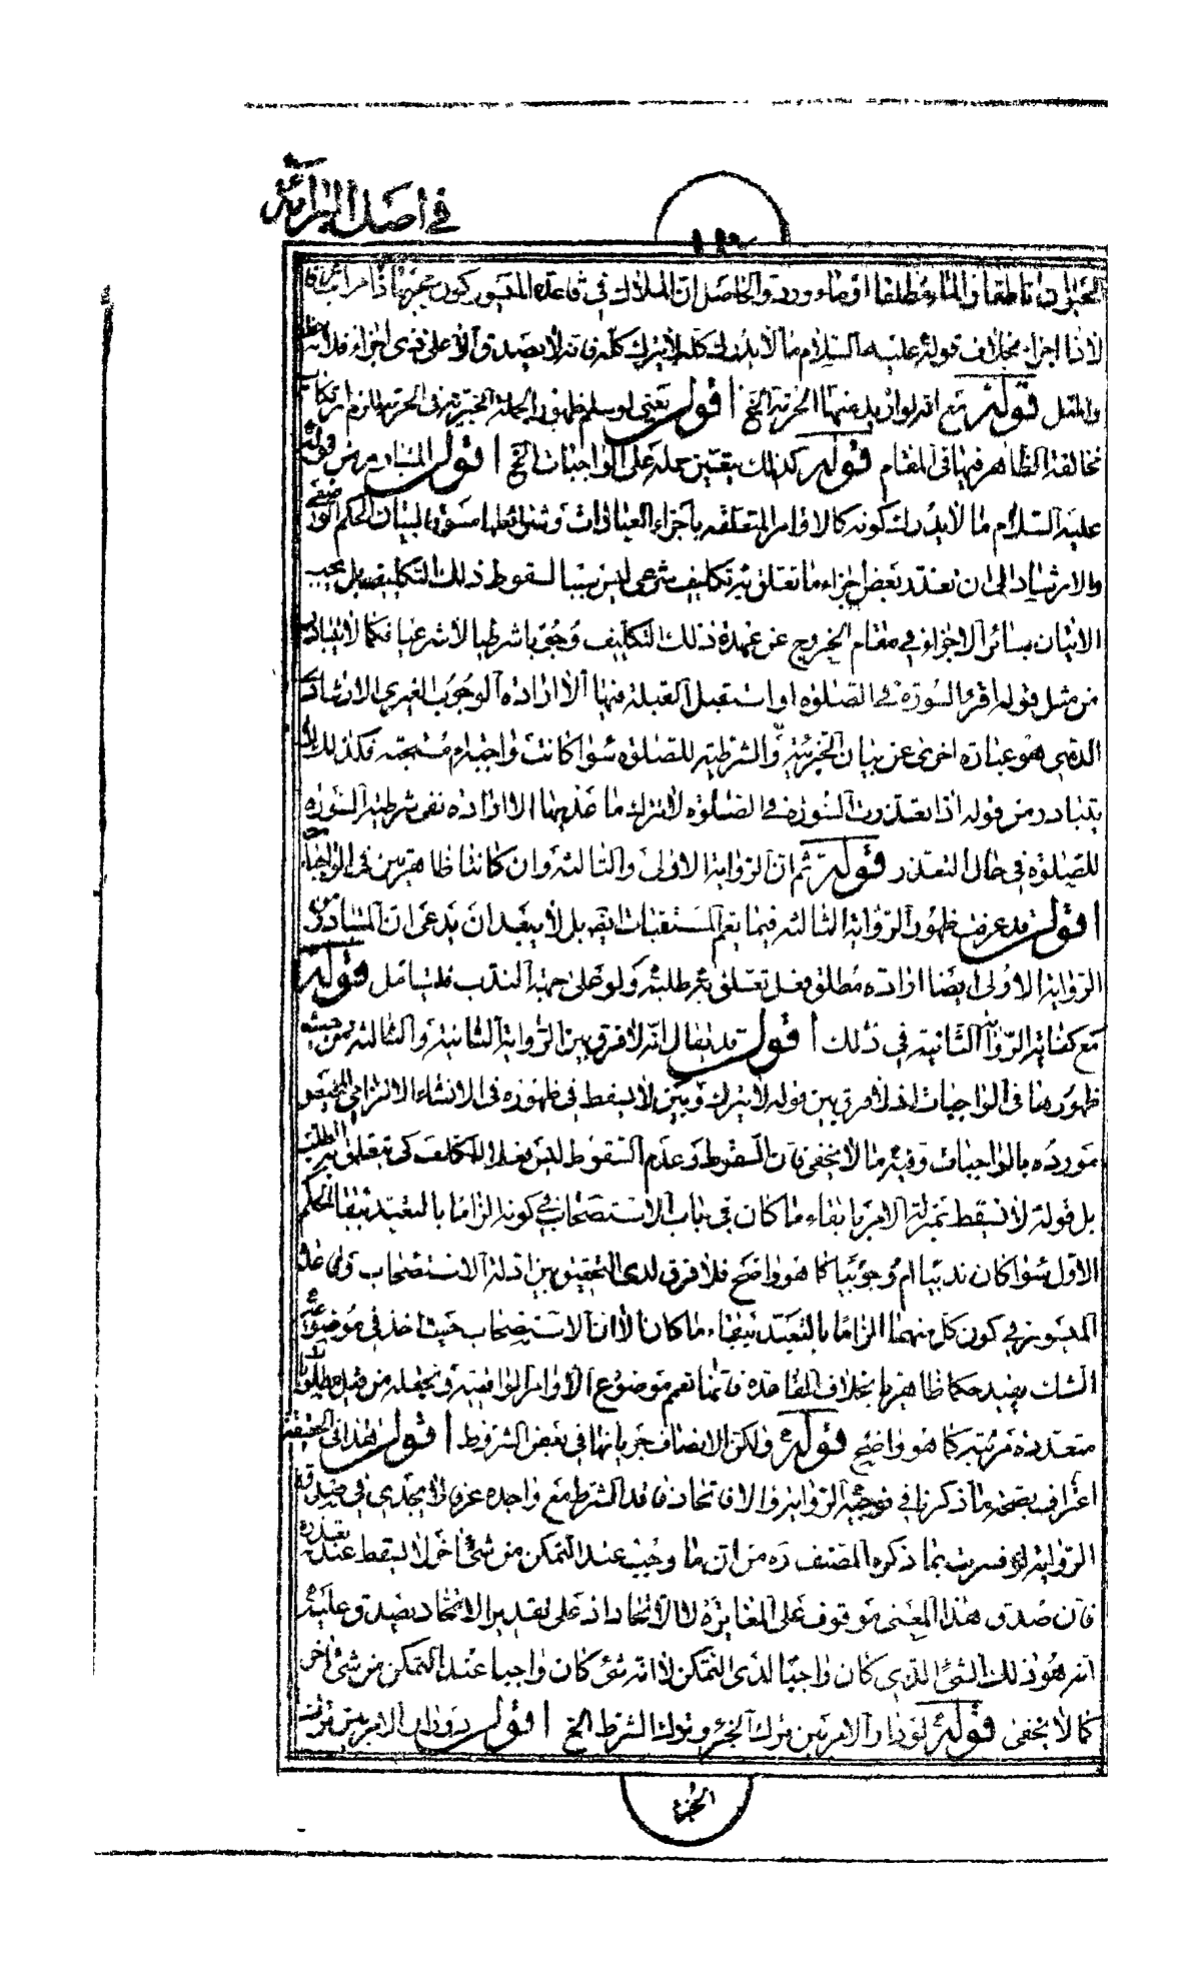 في اصل البرائة
الحيوان ناطقا والماء مطلقا او ماء ورد والحاصل ان الملاك في قاعدة الميسور كون غيرها ذا مراتب
لا ذا اجزاء بخلاف قوله عليه السلام ما لا يدرك كله لا يترك كله فانه لا يصدق الا على ذي اجزاء فلاحظ
وتأمل قوله مع انه لو اريد منها الحرمة الخ اقول يعني لو سلم ظهور الجملة الخبرية في الحرمة لزم ارتكاب
مخالفة الظاهر فيها في المقام قوله كذلك يتعين حمله على الواجبات الخ اقول المتبادر من قوله
عليه السلام ما لا يدرك كونه كالاوامر المتعلقة باجزاء العبادات وشرائطها مسوقا لبيان الحكم الوضعي
والارشاد الى ان تعذر بعض اجزاء ما تعلق به تكليف شرعي ليس سببا لسقوط ذلك التكليف بل يجب
الاتيان بسائر الاجزاء في مقام الخروج عن عهدة ذلك التكليف وجوبا شرطيا لا شرعيا فكما لا يتبادر
من مثل قوله اقرء السورة في الصلوة او استقبل القبلة فيها الا ارادة الوجوب الغيري الارشادي
الذي هو عبارة اخرى عن بيان الجزئية والشرطية للصلوة سواء كانت واجبة ام مستحبة فكذلك لا
يتبادر من قوله اذا تعذرت السورة في الصلوة لا تترك ما عديها الا ارادة نفي شرطية السورة
للصلوة في حال التعذر قوله ثم ان الرواية الاولى والثالثة وان كانتا ظاهرتين في الواجبات
اقول قد عرفت ظهور الرواية الثالثة فيما يعم المستحبات ايضا بل لا يبعد ان يدعى ان المتبادر من
الرواية الاولى ايضا ارادة مطلق فعل تعلق به طلبه ولو على جهة الندب فليتامل قوله
مع كفاية الرواية الثانية في ذلك اقول قد يقال انه لا فرق بين الرواية الثانية والثالثة من حيث
ظهورها في الواجبات اذ لا فرق بين قوله لا يترك وبين لا يسقط في ظهوره في الانشاء الالزامي المختص
مورده بالواجبات وفيه ما لا يخفى فان السقوط وعدم السقوط ليس بفعل المكلف كي يتعلق به الطلب
بل قوله لا يسقط بمنزلة الامر بابقاء ما كان في باب الاستصحاب في كونه الزاما بالتعبد ببقاء الحكم
الاول سواء كان ندبيا ام وجوبيا كما هو واضح فلا فرق لدى التحقيق بين ادلة الاستصحاب وبين قاعدة
الميسور في كون كل منهما الزاما بالتعبد ببقاء ما كان الا ان الاستصحاب حيث اخذ في موضوعه
الشك يفيد حكما ظاهريا بخلاف القاعدة فانها تعم موضوع الاوامر الواقعية وتجعله من قبيل مطلوبات
متعددة مرتبة كما هو واضح قوله ولكن الانصاف جريانها في بعض الشروط اقول هذا في الحقيقة
اعتراف بصحة ما ذكرنا في توجيه الرواية والا فاتحاد فاقد الشرط مع واجده عرفا لا يجدي في صدق
الرواية لو فسرت بما ذكره المصنف ره من ان ما وجب عند التمكن من شئ اخر لا يسقط عند تعذره
فان صدق هذا المعنى موقوف على المغايرة لا الاتحاد اذ على تقدير الاتحاد يصدق عليه
انه هو ذلك الشئ الذي كان واجبا لدى التمكن لا انه شئ كان واجبا عند التمكن من شئ اخر
كما لا يخفى قوله لو دار الامر بين ترك الجزء وترك الشرط الخ اقول دوران الامر بين ترك
الجزء